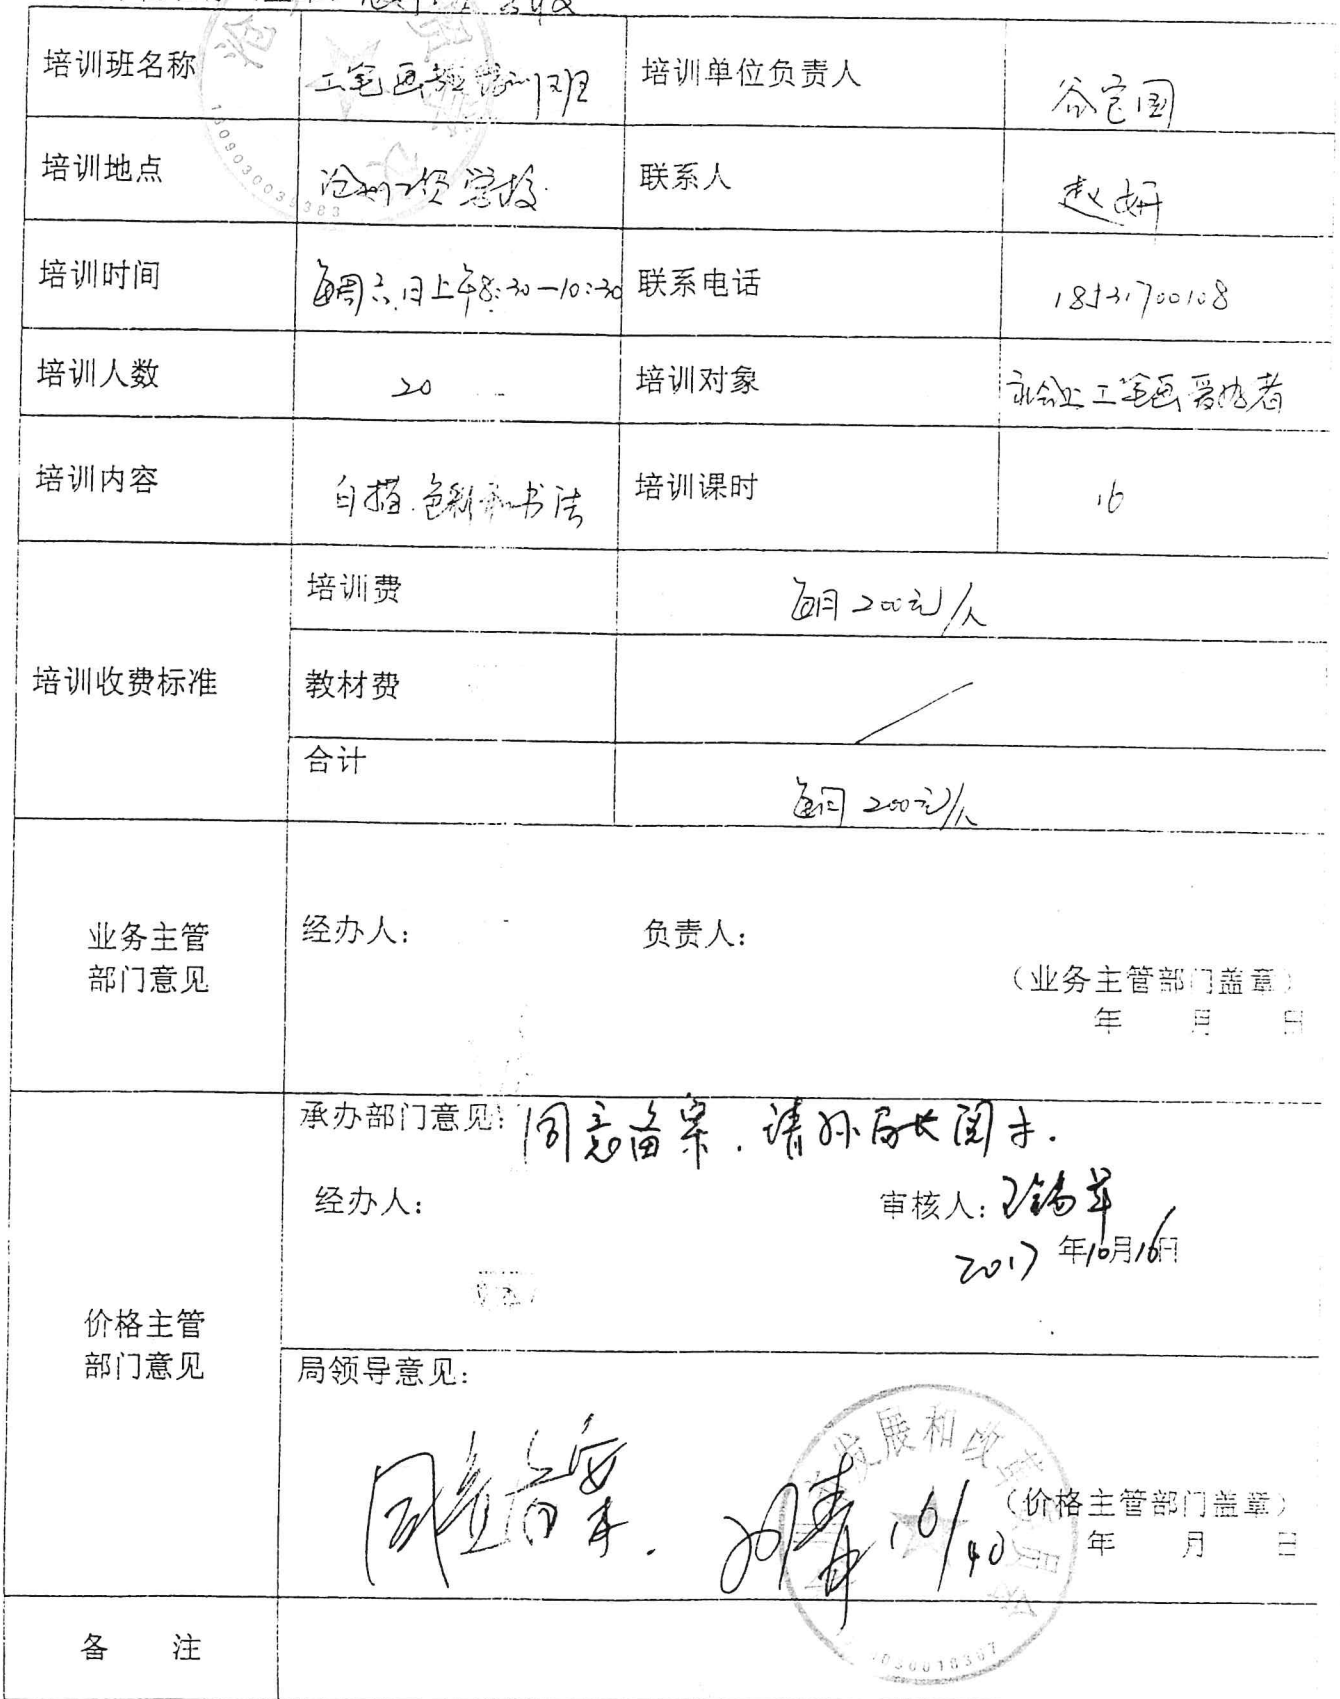 培训班名称 工笔画培训班 培训单位负责人 谷宝国
培训地点 沧州工贸学校 联系人 赵妍
培训时间 每周六、日上午8:30—10:30 联系电话 18531700108
培训人数 20 培训对象 社会上工笔画爱好者
培训内容 白描、色彩和书法 培训课时 16
培训收费标准
培训费 每月200元/人
教材费 /
合计 每月200元/人
业务主管
部门意见
经办人: 负责人:
(业务主管部门盖章)
年 月 日
价格主管
部门意见
承办部门意见: 同意备案.请孙局长阅示.
经办人: 审核人:
2017年10月16日
局领导意见:
同意备案. 16/10
发展和改革委员会
(价格主管部门盖章)
年 月 日
备 注